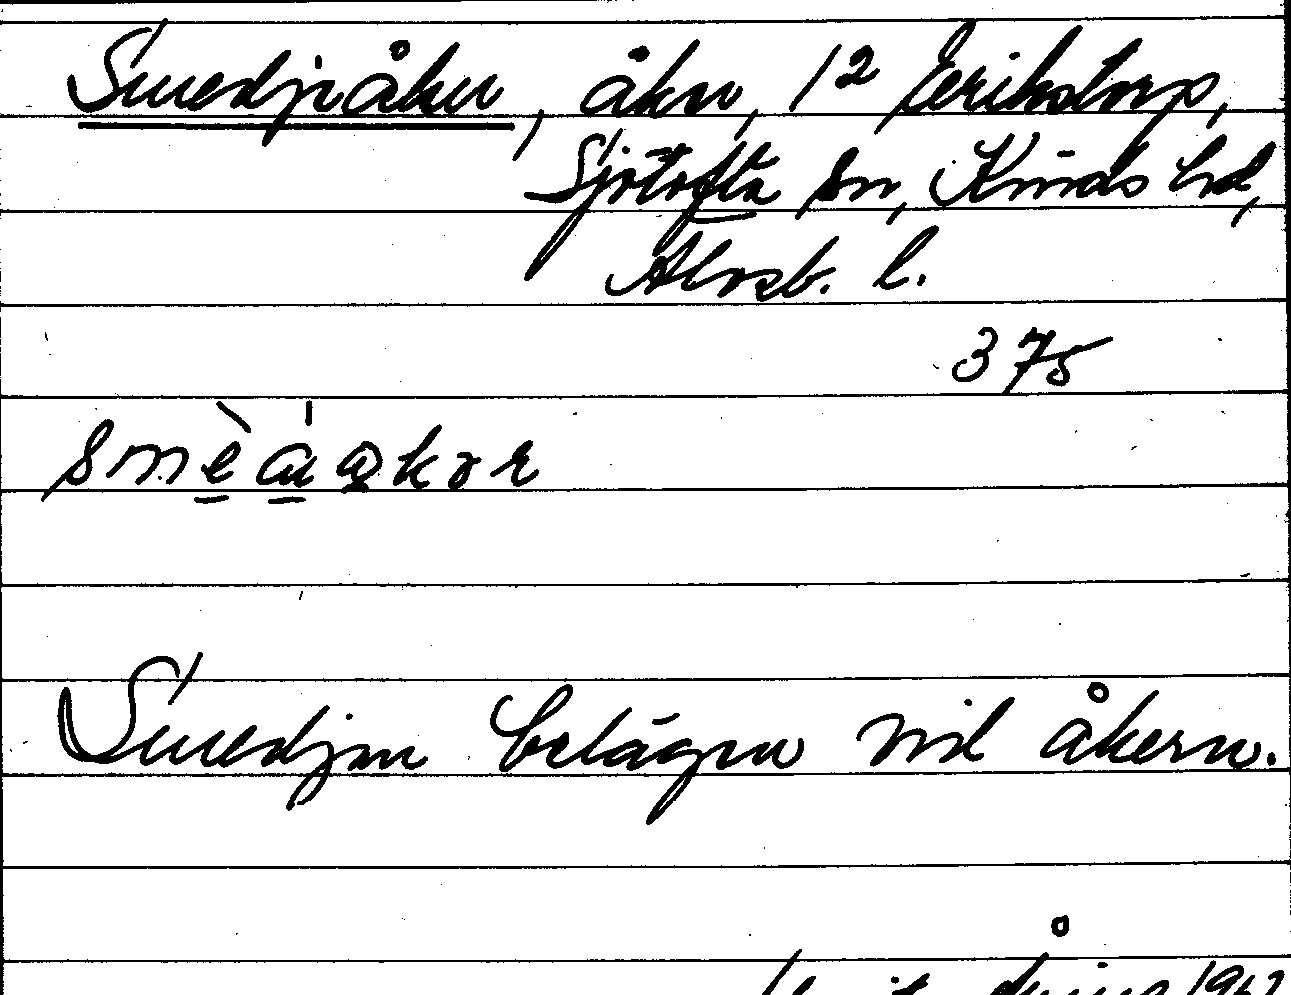 Smedjeåker, åker, 1² Eerikstorp,
Sjötofta sn, Kinds hd,
Älvsb. l.
375
smèa͟i ǫkər
Smedjan belägen vid åkern.